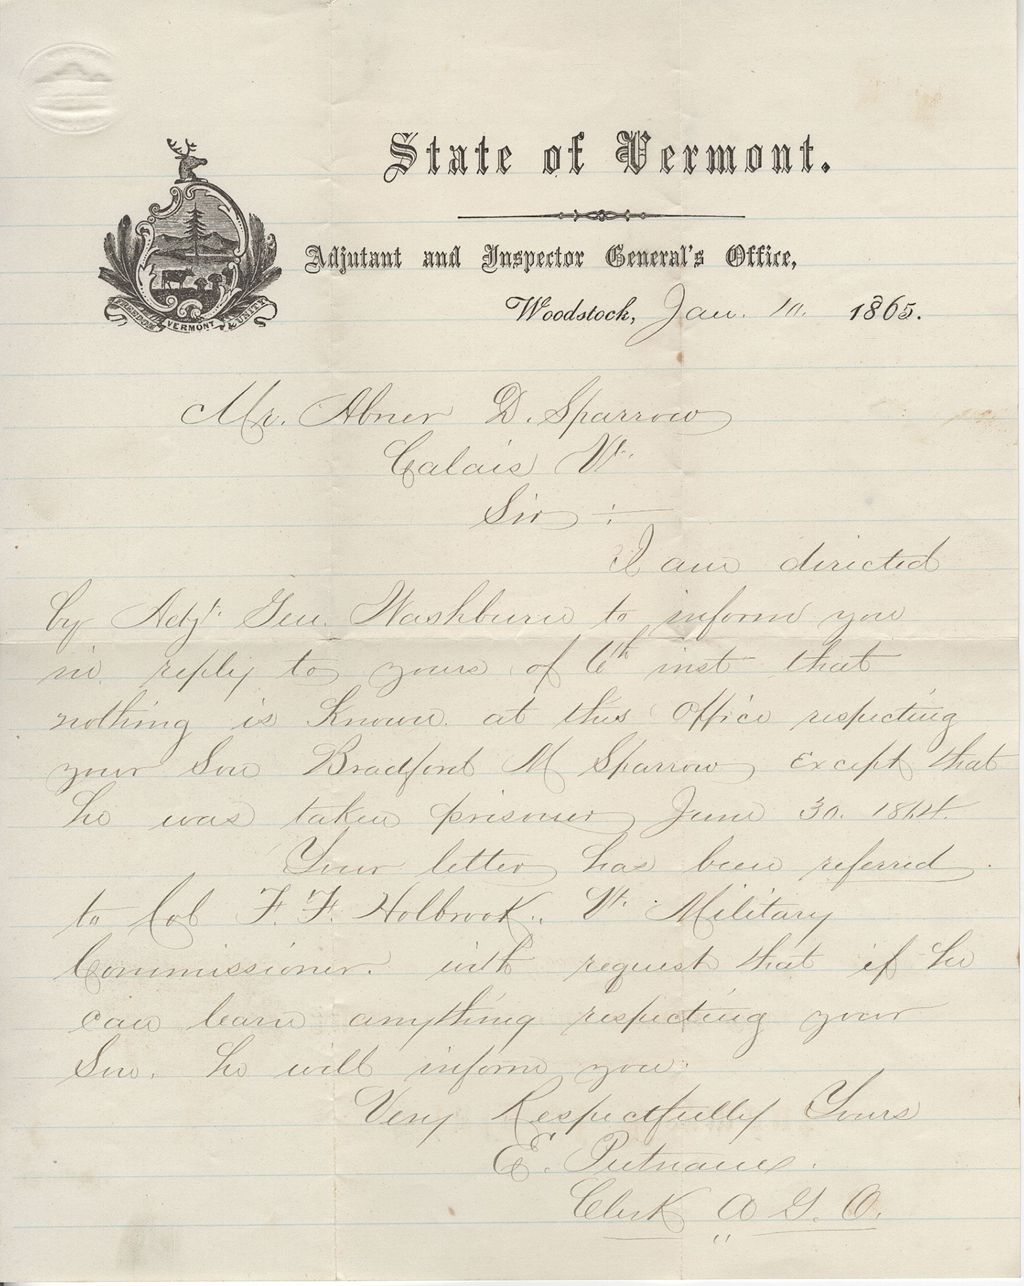 State of Vermont.
Adjutant and Inspector General's Office,
Woodstock, Jan. 10. 1865.
FREEDOM & UNITY
VERMONT
Mr. Abner D. Sparrow
Calais Vt.
Sir :
I am directed
by Adjt. Gen. Washburn to inform you
in reply to yours of 6th inst that
nothing is known at this Office respecting
your Son Bradford M Sparrow except that
he was taken prisoner June 30. 1864.
Your letter has been referred
to Col F. F. Holbrook. Vt. Military
Commissioner. with request that if he
can learn anything respecting your
Son. he will inform you.
Very Respectfully Yours
E. Putnam.
Clerk A. G. O.